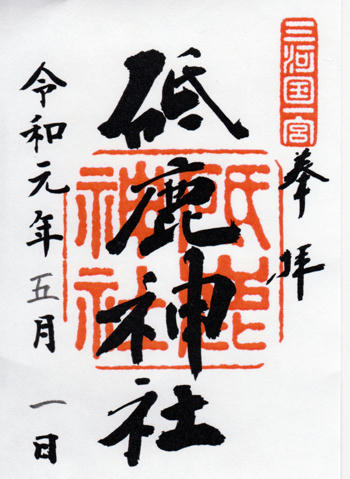 三河国一宮
奉拝
砥鹿神社
砥鹿神社
令和元年五月一日